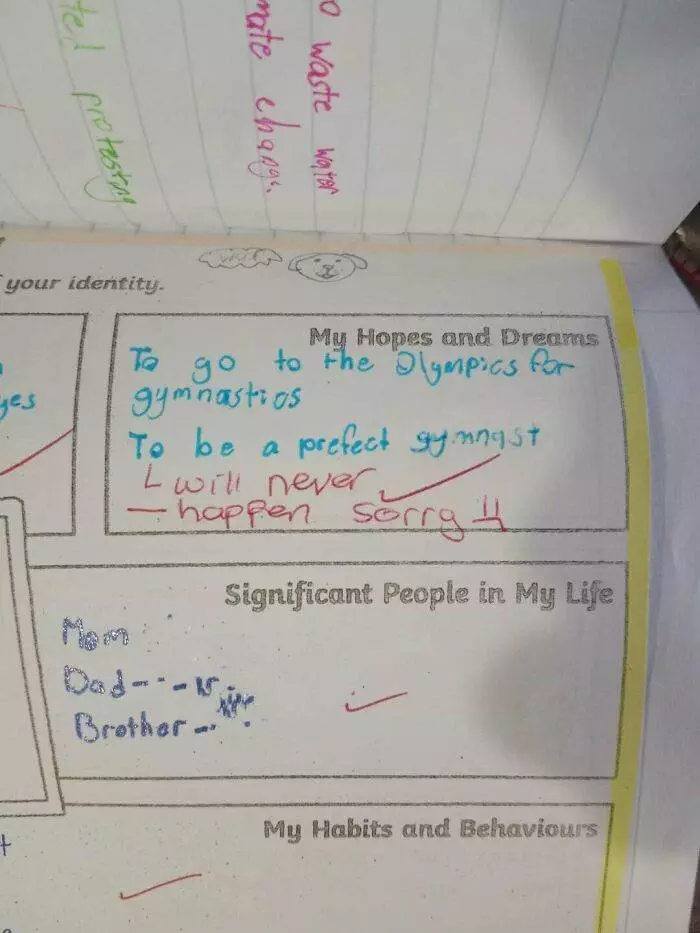 o waste water
mate change.
ted protesting
woof
your identity.
My Hopes and Dreams
To go to the Olympics for
gymnastics
To be a prefect gymnast
will never
happen sorry
yes
Significant People in My Life
Mom
Dad
Brother
My Habits and Behaviours